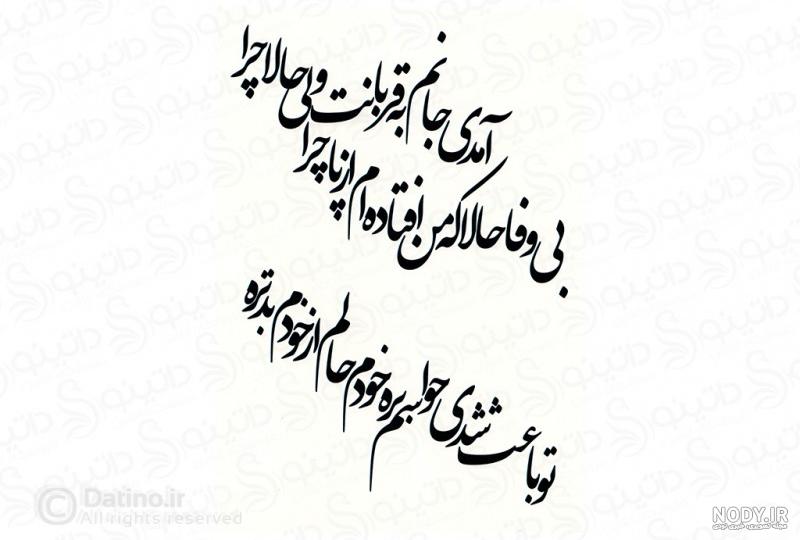 آمدی جانم به قربانت ولی حالا چرا
بی وفا حالا که من افتاده ام از پا چرا
تو باعث شدی حواسم بره خودم حالم از خودم بدتره
© Datino.ir
All rights reserved
NODY.IR